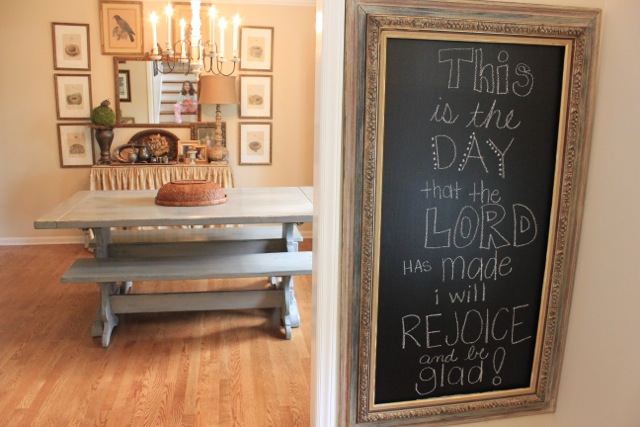 This
is the
DAY
that the
LORD
HAS made
i will
REJOICE
and be
glad!